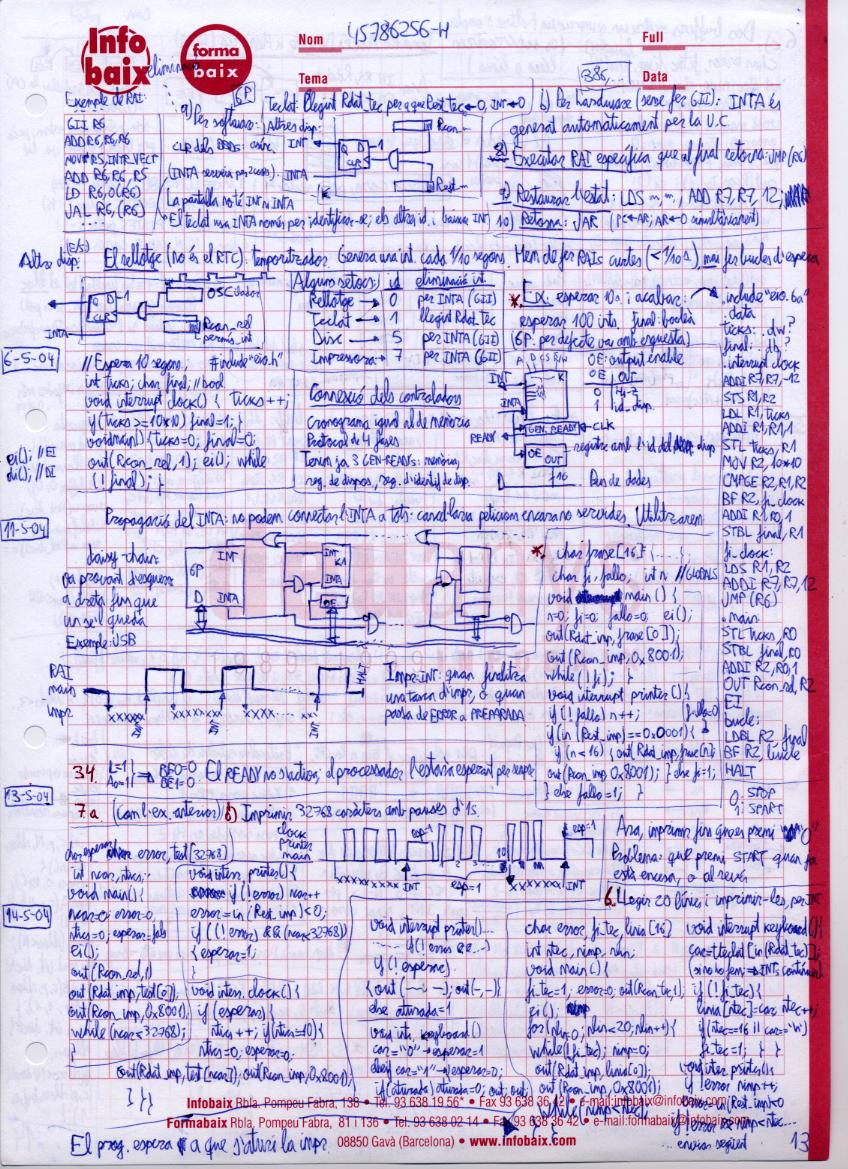 Info baix
forma baix
Nom 45786256-H
Full
Tema
386...
Data
Exemple de RAI:
GII R6
ADD R6,R6,R6
MOVI R5,INTR_VECT
ADD R6,R6,R5
LD R6,0(R6)
JAL R6,(R6)
eliminació
a) Per software:
6P
Teclat: Llegint Rdat_tec per a que Rest_tec←0, INT←0
Altres disp:
INT
CLR
INTA
Rcon_...
Rest_...
La pantalla no té INT ni INTA
El teclat usa INTA només per identificar-se; els altres id. i baixar INT
b) Per hardware (serveix fer GII): INTA és
generat automàticament per la U.C.
8) Executar RAI específica que al final retorna: JMP (R6)
9) Restaurar l'estat: LDS ..., ADD R7, R7, 12;
10) Retorna: JAR (PC←AR; AR←0 simultàniament)
Altres disp. (E/S):
El rellotge (no és el RTC). temporitzador. Genera una int. cada 1/10 segons. Hem de fer RAIs curtes (<1/10s), mai fer bucles d'espera
OSCil·lador
Q D 1
CLR
INTA
Rcon_rel
permís_int
Alguns vectors: id eliminació int.
Rellotge → 0 per INTA (GII)
Teclat → 1 llegint Rdat_tec
Disc → 5 per INTA (GII)
Impressora → 7 per INTA (GII)
* Ex. esperar 10s. i acabar:
esperar 100 ints. final: booleà
6-5-04
// Espera 10 segons, #include "eio.h"
int ticks; char final; // bool
void interrupt clock() { ticks++;
if (ticks >= 10*10) final=1; }
void main() { ticks=0; final=0;
out(Rcon_rel,1); ei(); while
(!final); }
ei(); // EI
di(); // DI
Connexió dels controladors
Cronograma igual al de memòria
Protocol de 4 fases
Tenim ja 3 GEN-READYs: memòria,
reg. de dispos., reg. d'identif. de disp.
OE: output enable
OE OUT
0 Hi-Z
1 id_disp.
INT
INTA
READY
GEN_READY
CLK
OE
OUT
registre amb l'id del disp
D
16
Bus de dades
.include "eio.6a"
.data
ticks: .dw ?
final: .db ?
.interrupt clock
ADDI R7,R7,-12
STS R1,R2
LDL R1,ticks
ADDI R1,R1,1
STL ticks,R1
MOV R2,10*10
CMPGE R2,R1,R2
BF R2, fi_clock
ADDI R1,R0,1
STBL final,R1
fi_clock:
LDS R1,R2
ADDI R7,R7,12
JMP (R6)
.main
STL ticks,R0
STBL final,R0
ADDI R2,R0,1
OUT Rcon_rel,R2
EI
bucle:
LDBL R2, final
BF R2, bucle
HALT
11-5-04
Propagació del INTA: no podem connectar l'INTA a tots: cancel·laria peticions encara no servides. Utilitzarem
daisy-chain:
va provant d'esquerra
a dreta fins que
un se'l queda
Exemple: USB
6P
INT
D INTA
INT
K1
INTA
OE
* char frase[16]{.......};
char fi, fallo; int n //GLOBALS
void main() {
n=0; fi=0; fallo=0; ei();
out(Rdat_imp, frase[0]);
out(Rcon_imp, 0x8001);
while (!fi); }
void interrupt printer() {
if (!fallo) n++; fallo=0
if (in (Rest_imp)==0x0001) {
if (n<16) { out(Rdat_imp,frase[n]);
out(Rcon_imp,0x8001); } else fi=1;
} else fallo=1; }
RAI
main
impr
HALT
INT
xxxxx
Impr. INT: quan finalitza
una tasca d'impr., o quan
passa de ERROR a PREPARADA
34.
L=1
A0=1
BE0=0
BE1=0
El READY no s'activa; el processador s'estaria esperant per sempre
13-5-04
0: STOP
1: START
7.a (Com l'ex. anterior) b) Imprimir 32768 caràcters amb pauses d'1s.
clock
printer
main
esp=1
INT
esp=1
xxxxxxxxx
INT
Ara, imprimir fins que es premi "0"
Problema: que premi START quan ja
està encesa, o al revés
char esperar, error, text[32768]
int ncar, ntics;
void main() {
ncar=0; error=0;
ntics=0; esperar=fals
ei();
out(Rcon_rel,1)
out(Rdat_imp,text[0]);
out(Rcon_imp,0x8001);
while (ncar<32768);
}
void inter. printer() {
if (!error) ncar++
error=in(Rest_imp)<0;
if ((!error) && (ncar<32768))
{ esperar=1;
}
void inter. clock() {
if (esperar) {
ntics++; if (ntics==10) {
ntics=0; esperar=0;
out(Rdat_imp,text[ncar]); out(Rcon_imp,0x8001);
} } }
14-5-04
void interrupt printer()...
...if (!error &&...)
if (!esperar)
{ out(~~~); out(~,~)
else aturada=1
void int. keyboard()
car="0" → esperar=1
elseif car="1" → {esperar=0;
if (aturada) aturada=0; out; out;
6. Llegir 20 línies i imprimir-les, per INT
char error, fi_tec, linia[16]
int ntec, nimp, nlin;
void main() {
fi_tec=1; error=0; out(Rcon_tec,1);
ei();
for (nlin=0; nlin<20; nlin++) {
while (!fi_tec); nimp=0;
out(Rdat_imp, linia[0]);
out(Rcon_imp,0x8001);
while (nimp<ntec)
void interrupt keyboard() {
car=tteclat[in(Rdat_tec)];
(si no ho fem ⇒ INTs contínues)
if (!fi_tec)
linia[ntec]=car; ntec++;
if (ntec==16 || car=='\n')
fi_tec=1; } }
void inter. printer() {
if !error nimp++;
error=in(Rest_imp)<0
if !error && nimp<ntec...
enviar següent
Infobaix Rbla. Pompeu Fabra, 138 • Tel. 93 638 19 56* • Fax 93 638 36 42 • e-mail:infobaix@infobaix.com
Formabaix Rbla. Pompeu Fabra, 81 i 136 • Tel. 93 638 02 14 • Fax 93 638 36 42 • e-mail:formabaix@infobaix.com
08850 Gavà (Barcelona) • www.infobaix.com
El prog. espera a que s'aturi la impr.
13